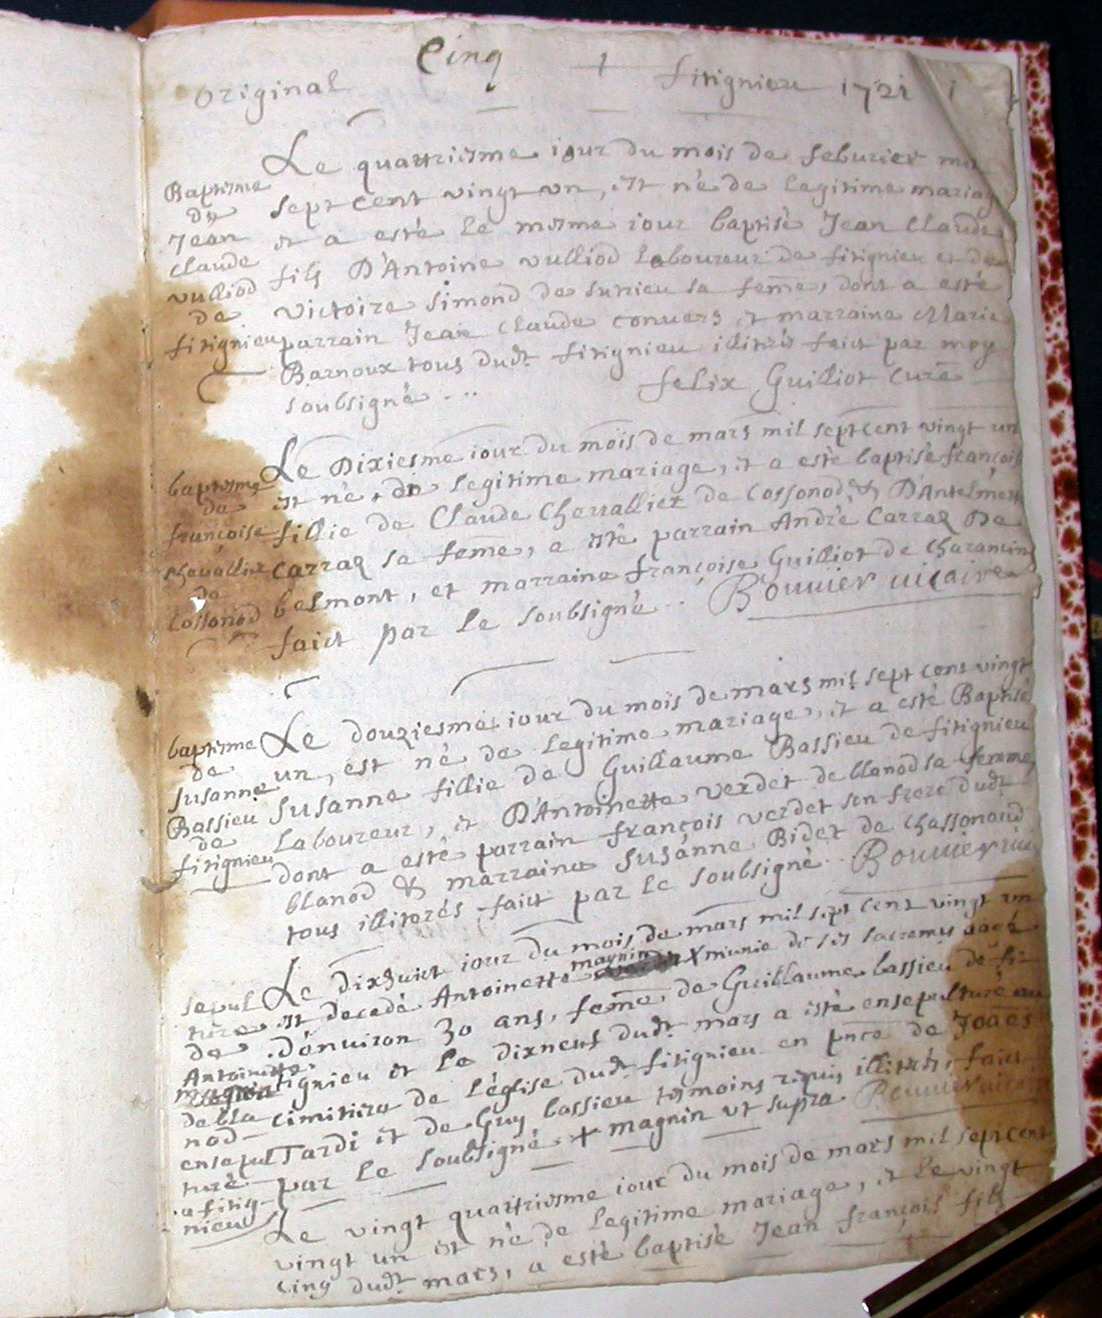 Cinq
original 1 fitignieu 1721 1
Baptesme
de
Jean
claude
vulliod
de
fitignieu
Le quattriesme iour du mois de feburier mil
sept cent vingt un, est né de legitime mariage
et a esté le mesme iour baptisé Jean Claude
fils D'Antoine vulliod laboureur de fitignieu et de
victoire simond de surieu sa feme, dont a esté
parrain Jean claude convers et marraine Marie
Barnoux tous dudt fitignieu illitrés faict par moy
soubsigné ... felix Guilliot curé
baptesme
de
françoise
chevallier
de
Cossonod
Le Dixiesme iour du mois de mars mil sept cent vingt un
est né de legitime mariage, et a esté baptisé françoise
fillie de Claude Chevallier de Cossonod, & D'Antelmette
Carraz sa feme, a esté parrain André Carraz De
belmont, et marraine françoise Guilliot de Charancin
faict par le soubsigné .. Bouvier vicaire
baptesme
de
susanne
Bassieu
de
fitignieu
Le douziesme iour du mois de mars mil sept cent vingt
un, est né de legitime mariage, et a esté Baptisé
susanne fillie de Guillaume Bassieu de fitignieu
Laboureur, et D'Antoinette verdet de blanod sa femme,
dont a esté parrain françois verdet son frere dudt
blanod & marraine susanne Bidet de chassonoud
tous illitorés faict par le soubsigné. Bouvier vic
sepul
ture
de
Antoinette
magnin
de bla
nod
ensepul
turé
a fitig-
nieu
Le dixhuict iour du mois de mars mil sept cent vingt un
est decedé Antoinette magnin X munie de ses sacremts aagé
D'environ 30 ans, feme de Guillaume bassieu de fi-
tignieu et le dixneuf dudt mars a esté ensepulturé au
cimitiere de l'église dudt fitignieu en pnce de Joães
Tardi et de Guy bassieu tesmoins requis illitrés, faict
par le soubsigné + magnin ut supra Bouvier vicaire
Le vingt quattriesme iour du mois de mars mil sept cent
vingt un est né de legitime mariage, et le vingt
cinq dudt mars, a esté baptisé Jean françois fils